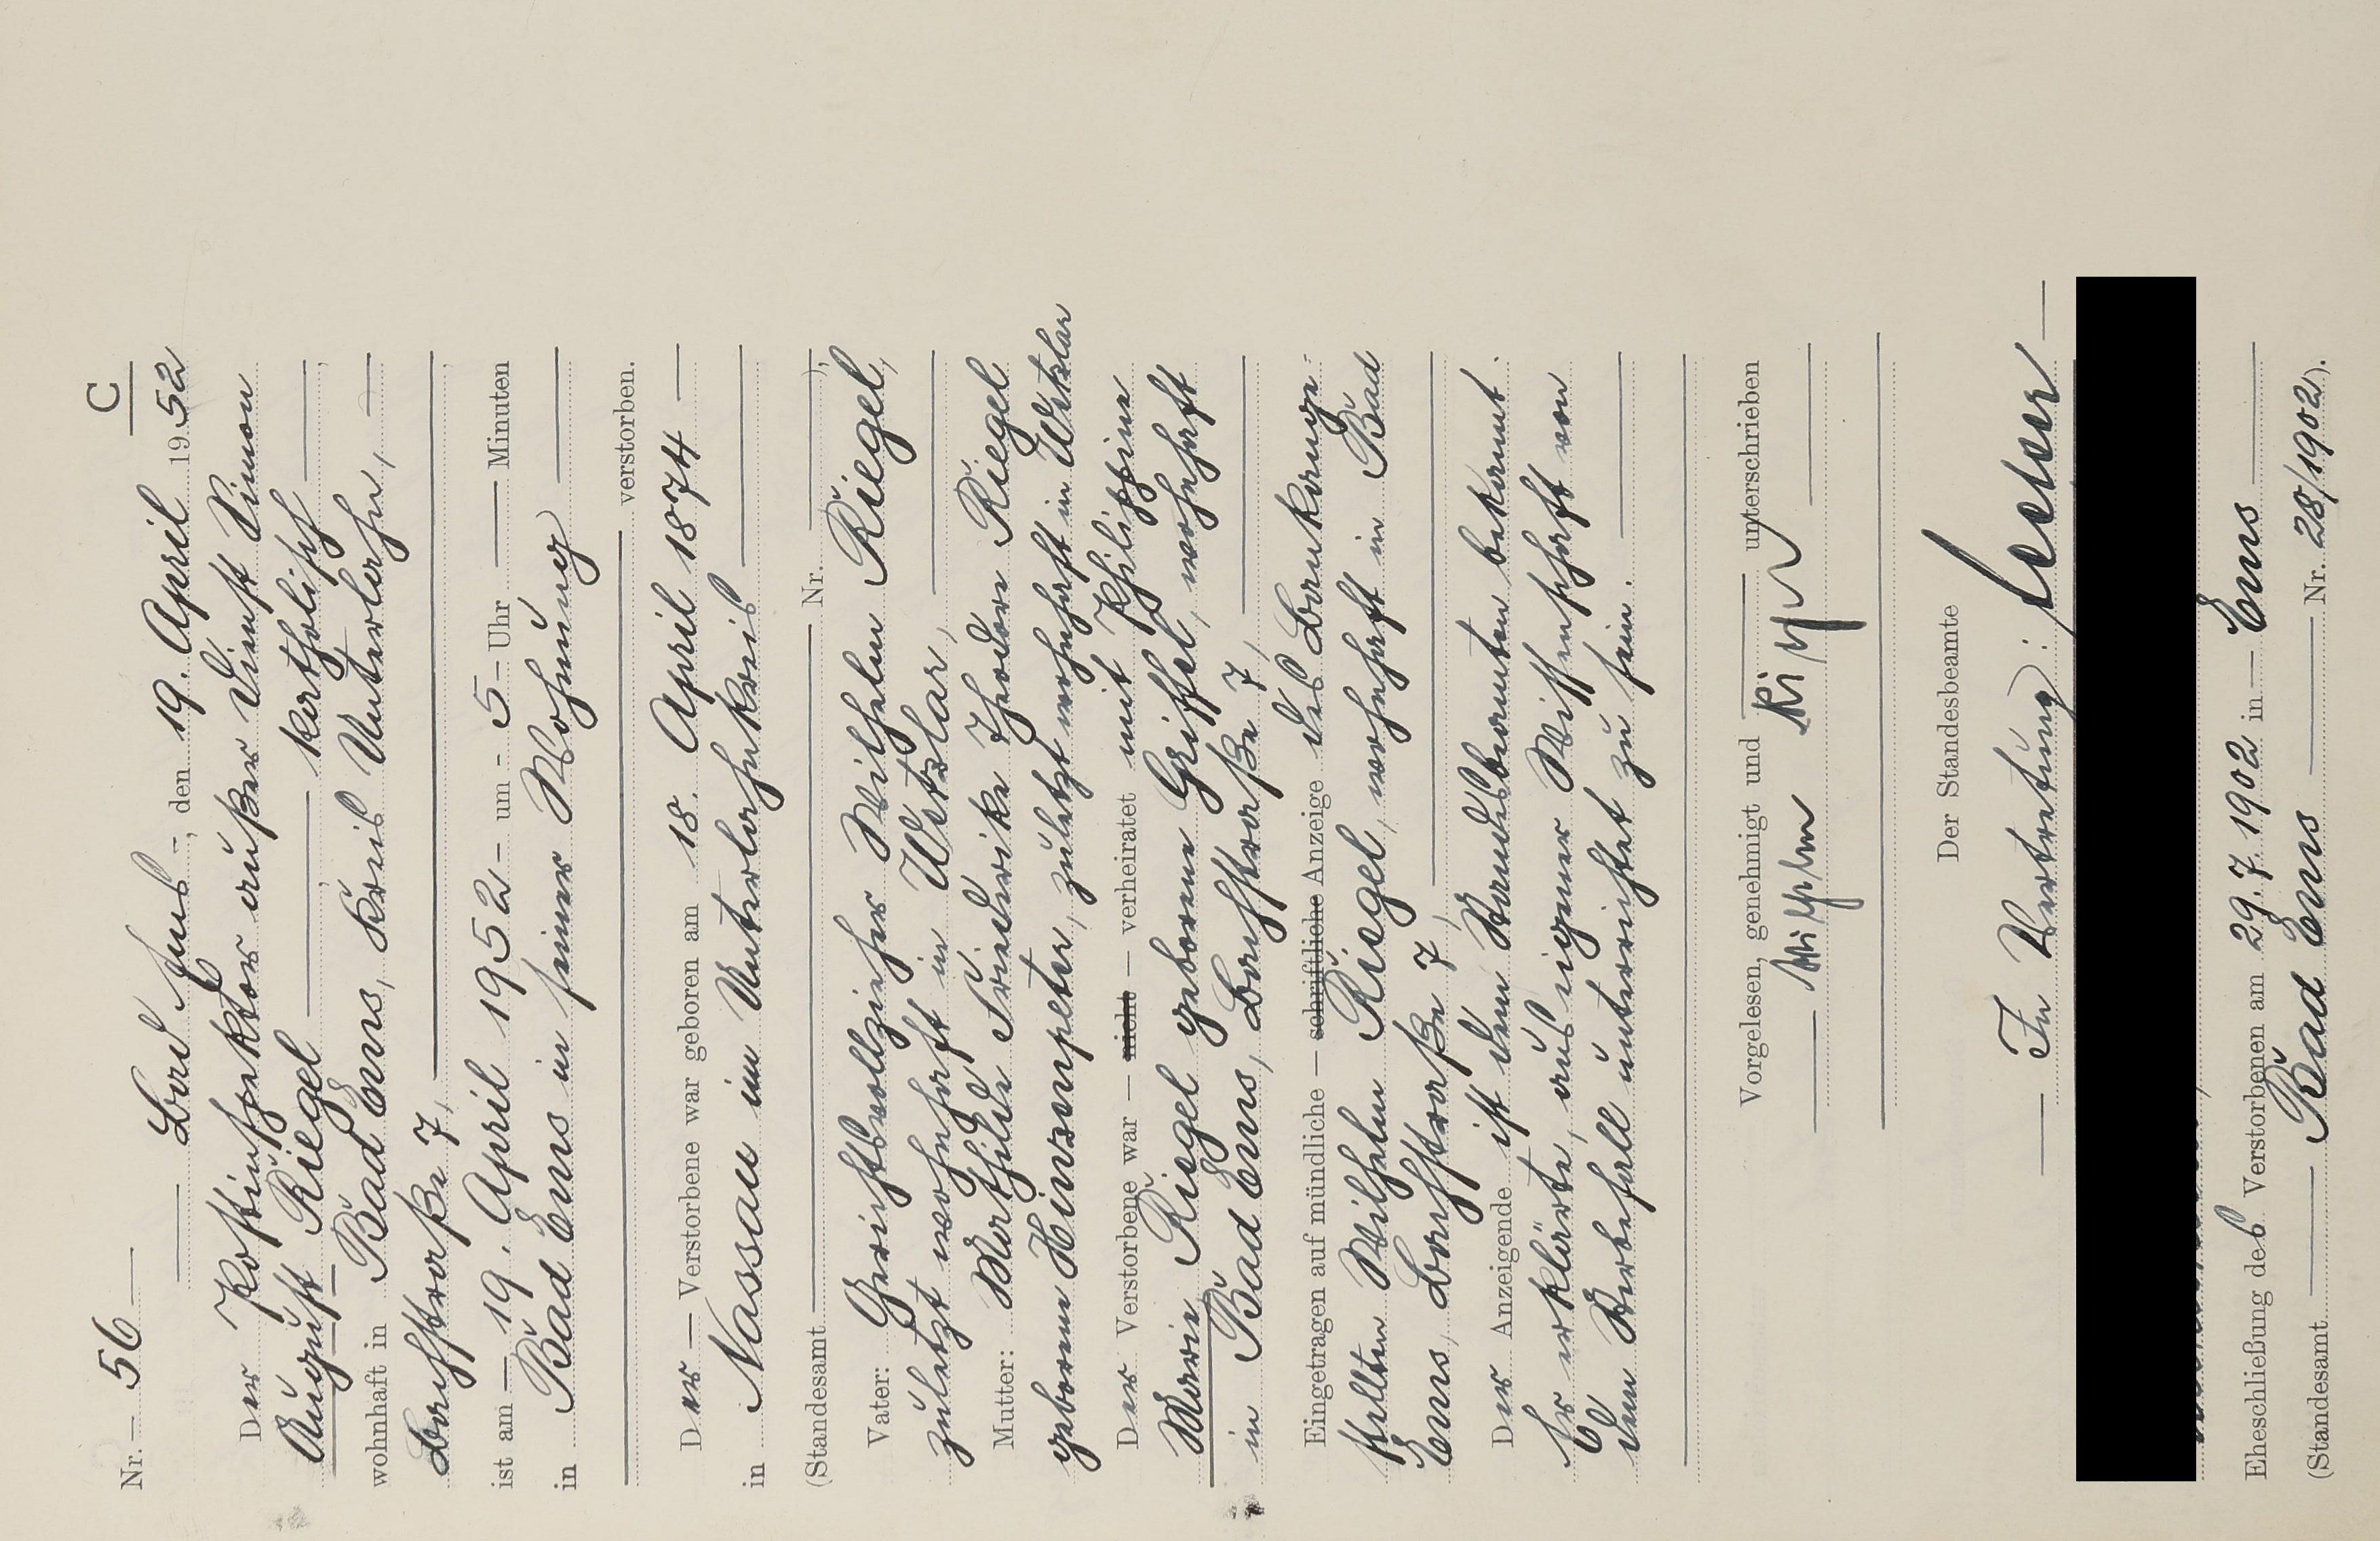 C
Nr. 56
Bad Ems, den 19. April 1952
Der Postinspektor außer Dienst Simon
August Riegel, katholisch,
wohnhaft in Bad Ems, Kreis Unterlahn,
Bachstraße 7,
ist am 19. April 1952 um 5 Uhr Minuten
in Bad Ems in seiner Wohnung
verstorben.
Der Verstorbene war geboren am 18. April 1874
in Nassau im Unterlahnkreis
(Standesamt Nr. ),
Vater: Gerichtsvollzieher Wilhelm Riegel,
zuletzt wohnhaft in Wetzlar,
Mutter: Mathilde Friederike Theodore Riegel
geborene Hinsonpeter, zuletzt wohnhaft in Wetzlar
Der Verstorbene war — nicht — verheiratet mit Philippine
Marie Riegel geborene Griffel, wohnhaft
in Bad Ems, Bachstraße 7,
Eingetragen auf mündliche — schriftliche Anzeige des Bankange-
stellten Wilhelm Riegel, wohnhaft in Bad
Ems, Bachstraße 7,
Der Anzeigende ist dem Standesbeamten bekannt.
Er erklärte, aus eigener Wissenschaft von
dem Sterbefall unterrichtet zu sein.
Vorgelesen, genehmigt und unterschrieben
Wilhelm Riegel
Der Standesbeamte
In Vertretung:
Eheschließung des Verstorbenen am 29.7.1902 in Ems
(Standesamt Bad Ems Nr. 28/1902).